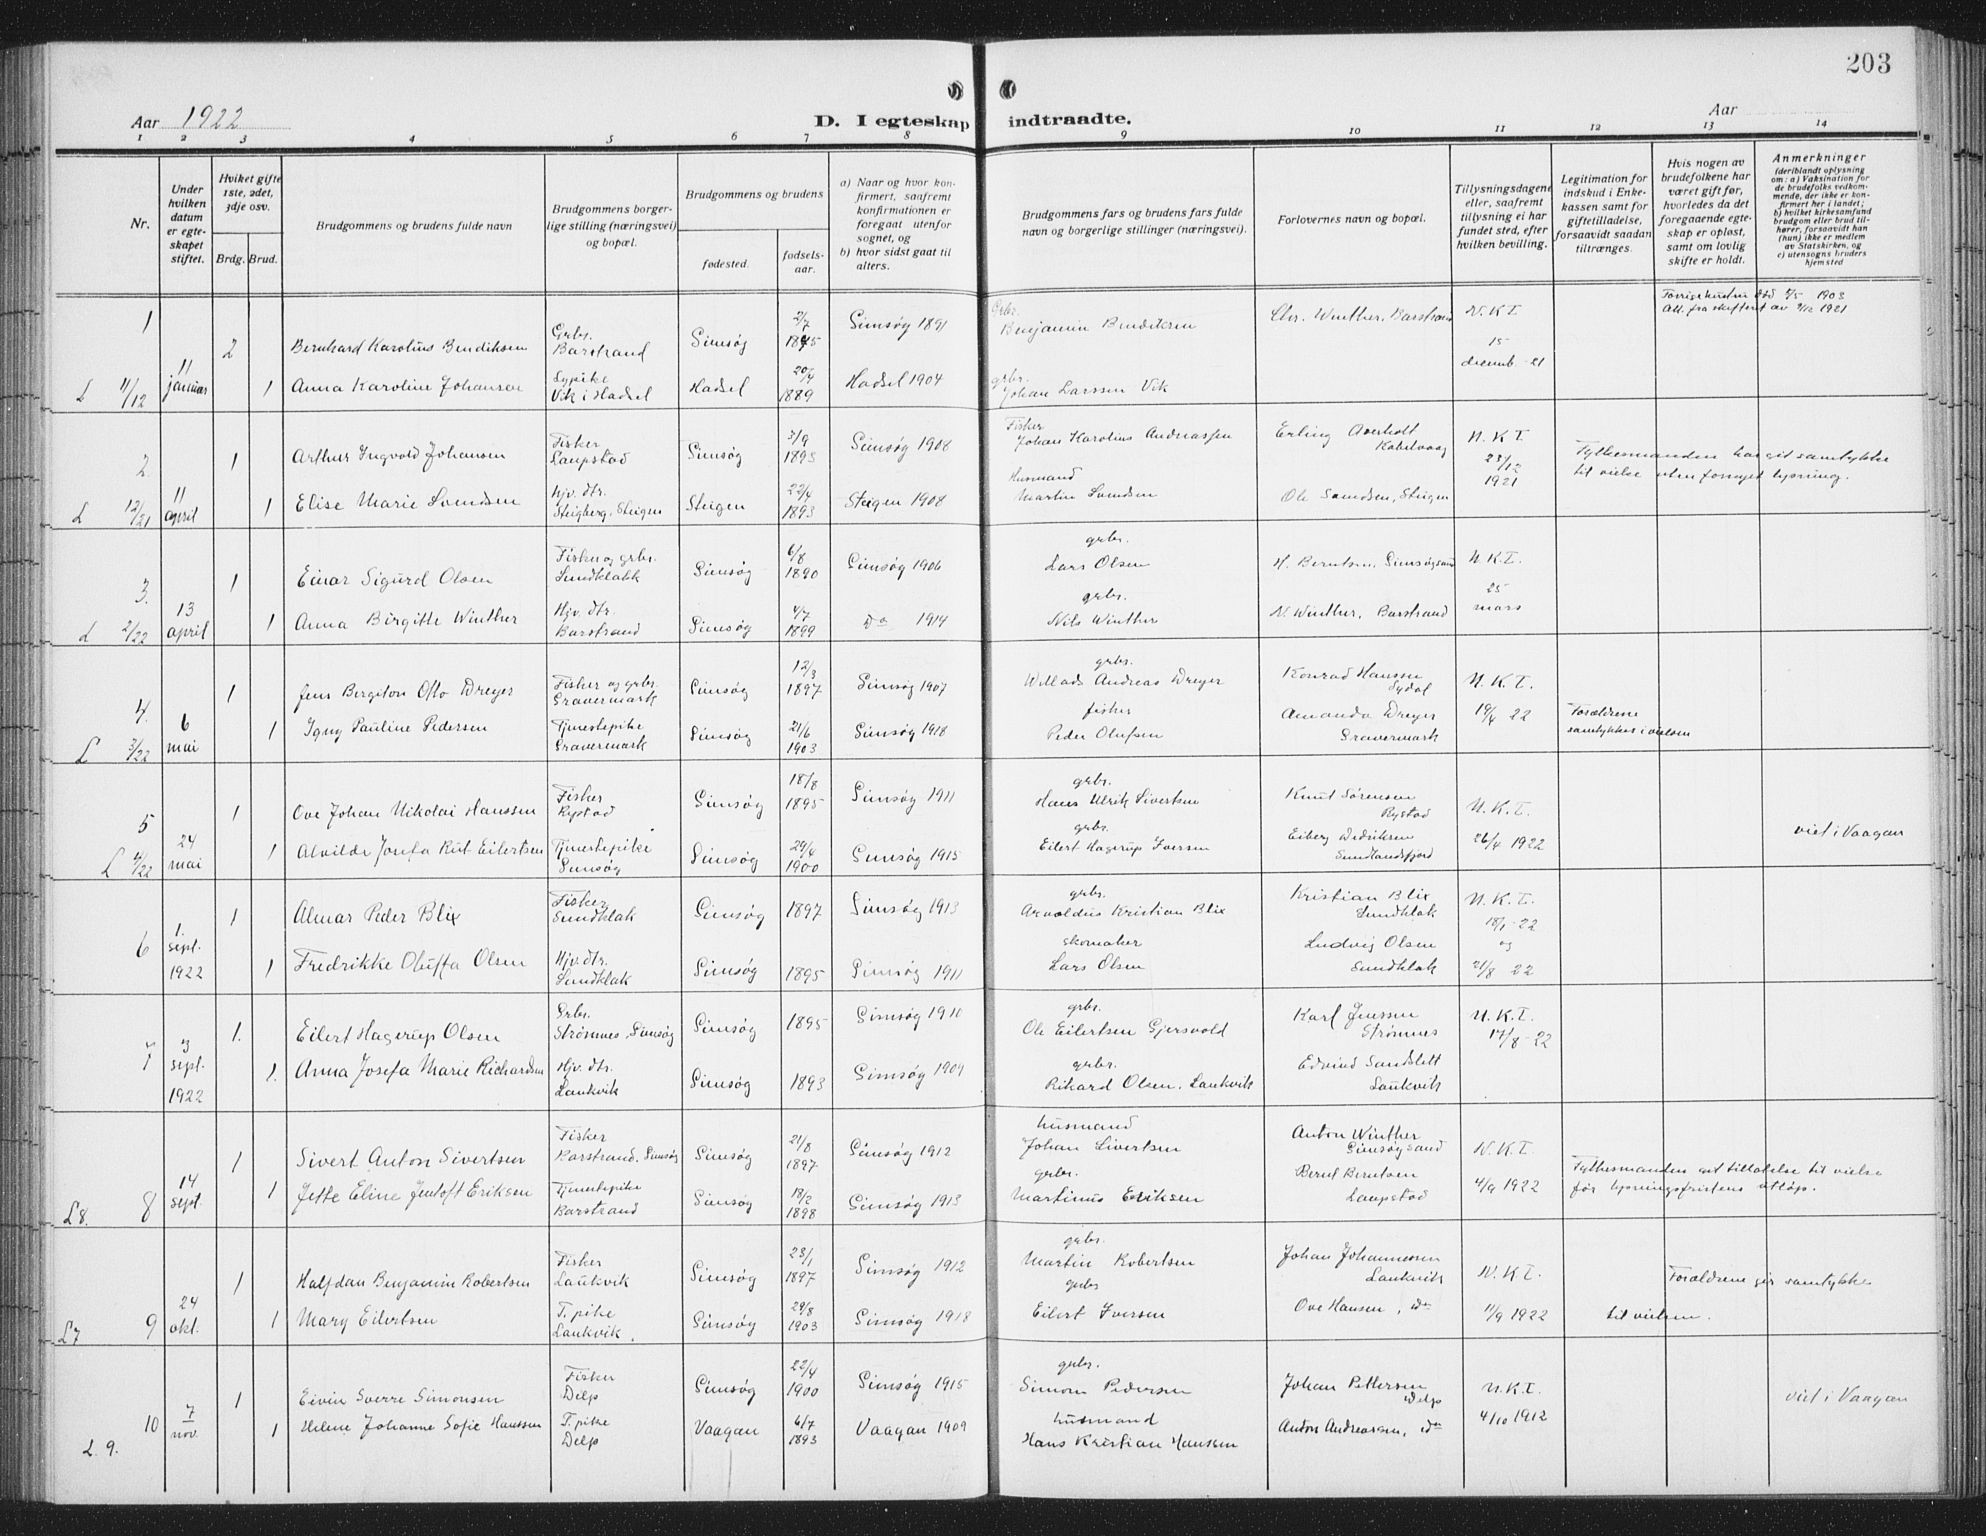 203
Aar 1922
D. I egteskap indtraadte.
Aar
1 2 3 4 5 6 7 8 9 10 11 12 13 14
Nr.
Under hvilken datum er egteskapet stiftet.
Hvilket gifte 1ste, 2det, 3dje osv.
Brdg. Brud.
Brudgommens og brudens fulde navn
Brudgommens borgerlige stilling (næringsvei) og bopæl.
Brudgommens og brudens
fødested.
fødselsaar.
a) Naar og hvor konfirmert, saafremt konfirmationen er foregaat utenfor sognet, og
b) hvor sidst gaat til alters.
Brudgommens fars og brudens fars fulde navn og borgerlige stillinger (næringsvei).
Forlovernes navn og bopæl.
Tillysningsdagene eller, saafremt tillysning ei har fundet sted, efter hvilken bevilling.
Legitimation for indskud i Enkekassen samt for giftetilladelse, forsaavidt saadan tiltrænges.
Hvis nogen av brudefolkene har været gift før, hvorledes da det foregaaende egteskap er opløst, samt om lovlig skifte er holdt.
Anmerkninger
(deriblandt oplysning om: a) Vaksination for de brudefolks vedkommende, der ikke er konfirmert her i landet;
b) hvilket kirkesamfund brudgom eller brud tilhører, forsaavidt han (hun) ikke er medlem av Statskirken, og
c) utensogns bruders hjemsted
1 L 11/12 11 januar
2 Bernhard Karolius Bendiksen Grbr. Barstrand Gimsøy 2/7 1875 Gimsøy 1891 Grbr. Benjamin Bendiksen Chr. Winther, Barstrand N.K.T. 15 decemb - 21
Forrige hustru død 5/5 1903
Att. fra skifteret av 9/12 1921
1 Anna Karoline Johansen Sypike Vik i Hadsel Hadsel 20/4 1889 Hadsel 1904 grbr. Johan Larssen Vik
2 L 12/21 11 april
1 Arthur Ingvold Johansen Fisker Laupstad Gimsøy 3/9 1893 Gimsøy 1908 Fisker Johan Karolius Andreassen Erling Kabelvaag N.K.T. 23/12 1921
Fylkesmanden har git samtykke til vielse uten fornyet lysning.
1 Elise Marie Svendsen Hjv. dtr. Steigberg, Steigen Steigen 22/4 1893 Steigen 1908 Husmand Martin Svendsen Ole Svendsen, Steigen
3. L 2/22 13 april
1 Einar Sigurd Olsen Fisker og grbr. Sundklakk Gimsøy 6/8 1890 Gimsøy 1906 grbr. Lars Olsen H. Berntsen, Gimsøysand N.K.T. 25 mars
1 Anna Birgitte Winther Hjv. dtr. Barstrand Gimsøy 4/7 1899 do 1914 grbr. Nils Winther N. Winther, Barstrand
4. L 3/22 6 mai
1 Jens Bergiton Otto Dreyer Fisker og grbr. Gravermark Gimsøy 12/3 1897 Gimsøy 1907 grbr. Willads Andreas Dreyer Konrad Hanssen Sydal N.K.T. 19/4 22
Forældrene samtykker i vielsen
1 Igny Pauline Pedersen Tjenestepike Gravermark Gimsøy 21/6 1903 Gimsøy 1918 fisker Peder Olufsen Amanda Dreyer Gravermark
5 L 4/22 24 mai
1 Ove Johan Nikolai Hanssen Fisker Rystad Gimsøy 18/8 1895 Gimsøy 1911 grbr. Hans Ulrik Sivertsen Knut Sørensen Rystad N.K.T. 26/4 1922
viet i Vaagan
1 Alvilde Josefa Rut Eilertsen Tjenestepike Gimsøy Gimsøy 29/4 1900 Gimsøy 1915 grbr. Eilert Hagerup Iversen Eiberg Didriksen Sundlandsfjord
6 1. sept. 1922
1 Almar Peder Blix Fisker Sundklak Gimsøy 1897 Gimsøy 1913 grbr. Arnoldus Kristian Blix Kristian Blix Sundklak N.K.T. 18/1 - 22 og 21/8 22
1 Fredrikke Oluffa Olsen Hjv. dtr. Sundklak Gimsøy 1895 Gimsøy 1911 skomaker Lars Olsen Ludvig Olsen Sundklak
7 3 sept. 1922
1. Eilert Hagerup Olsen Grbr. Strømnes, Gimsøy Gimsøy 1895 Gimsøy 1910 grbr. Ole Eilertsen Gjersvold Karl Jenssen Strømnes N.K.T. 17/8 - 22
1. Anna Josefa Marie Richardsen Hjv. dtr. Laukvik Gimsøy 1893 Gimsøy 1909 grbr. Rikard Olsen, Laukvik Edvind Sandslett Laukvik
8 L8. 14 sept.
1 Sivert Anton Sivertsen Fisker Barstrand, Gimsøy Gimsøy 21/8 1897 Gimsøy 1912 husmand Johan Sivertsen Anton Winther Gimsøysand N.K.T. 4/9 1922
Fylkesmanden git tillatelse til vielse før lysningsfristens utløp.
1 Jette Eline Jentoft Eriksen Tjenestepike Barstrand Gimsøy 18/2 1898 Gimsøy 1913 grbr. Martinus Eriksen Bernt Berntsen Laupstad
9 L7 24 okt.
1 Halfdan Benjamin Robertsen Fisker Laukvik Gimsøy 23/1 1897 Gimsøy 1912 grbr. Martin Robertsen Johan Johannessen Laukvik N.K.T. 11/9 1922
Forældrene gir samtykke til vielsen.
1 Mary Eilertsen T. pike Laukvik. Gimsøy 29/8 1903 Gimsøy 1918 grbr Eilert Iversen Ove Hansen, do
10 L. 9. 7 nov.
1 Eivin Sverre Simonsen Fisker Delp Gimsøy 22/4 1900 Gimsøy 1915 grbr. Simon Pedersen Johan Pettersen Delp N.K.T. 4/10 1912
viet i Vaagan
1 Helene Johanne Sofie Hanssen T. pike Delp Vaagan 6/7 1893 Vaagan 1909 husmand Hans Kristian Hansen Anton Andreassen, do